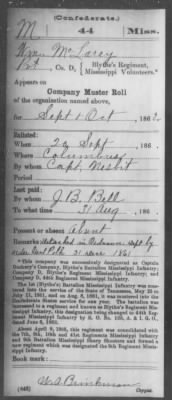 (Confederate.)
M 44 Miss.
Wm. McLarey
Pvt, Co. D, Blythe's Regiment,
Mississippi Volunteers.*
Appears on
Company Muster Roll
of the organization named above,
for Sept & Oct, 1862.
Enlisted:
When 29 Sept, 186
Where Columbus
By whom Capt. Nesbit
Period
Last paid:
By whom J. B. Bell
To what time 31 Aug, 186
Present or absent Absent
Remarks: detached in Ordnance Dept by
order Genl Polk 21 1861
*This company was successively designated as Captain
Company, Blythe's Battalion Mississippi Infantry;
Company D, Blythe's Regiment Mississippi Infantry; and
Company 44th Regiment Mississippi Infantry.
The 1st (Blythe's) Battalion Mississippi Infantry was mustered
into the service of the State of
July 31, 1861, and on Aug. 1861, it was mustered into the
Confederate States service for one year. The battalion was
increased to a regiment and known as Blythe's Regiment
Mississippi Infantry, this designation being changed to 44th Regiment
Mississippi Infantry by S. O. No. A. & I. G. O.,
dated June 1863.
About April 9, 1865, this regiment was consolidated with
the 7th, 9th, 10th and 41st Regiments Mississippi Infantry and
9th Battalion Mississippi Sharp Shooters and formed a
new regiment, which was designated the 9th Regiment Mississippi
Infantry.
Book mark:
(642) Brinkman
Copyist.